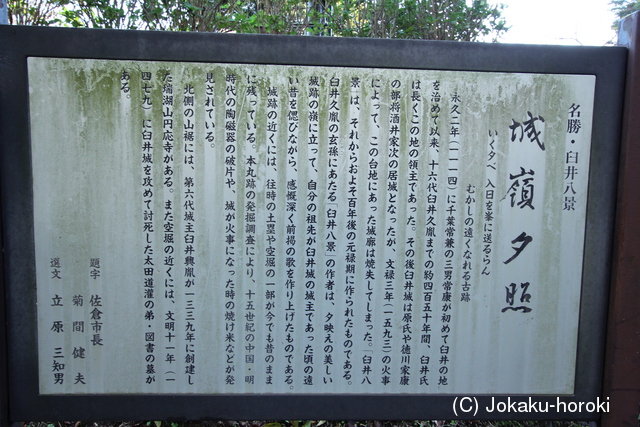 名勝・臼井八景
城嶺夕照
いく夕べ 入日を峯に送るらん
むかしの遠くなれる古跡
永久二年（一一一四）に千葉常兼の三男常康が初めて臼井の地
を治めて以来、十六代臼井久胤までの約四百五十年間、臼井氏
は長くこの地の領主であった。その後臼井城は原氏や徳川家康
の部将酒井家次の居城となったが、文禄三年（一五九三）の火事
によって、この台地にあった城廓は焼失してしまった。「臼井八
景」は、それからおよそ百年後の元禄期に作られたものである。
臼井久胤の玄孫にあたる「臼井八景」の作者は、夕映えの美しい
城跡の嶺に立って、自分の祖先が臼井城の城主であった頃の遠
い昔を偲びながら、感慨深く前掲の歌を作り上げたものである。
城跡の近くには、往時の土塁や空堀の一部が今でも昔のまま
に残っている。本丸跡の発掘調査により、十五世紀の中国・明
時代の陶磁器の破片や、城が火事になった時の焼け米などが発
見されている。
北側の山裾には、第六代城主臼井興胤が一三三九年に創建し
た瑞湖山円応寺がある。また空堀の近くには、文明十一年（一
四七九）に臼井城を攻めて討死した太田道灌の弟・図書の墓が
ある。
題字 佐倉市長
菊間健夫
選文 立原三知男
(C) Jokaku-horoki